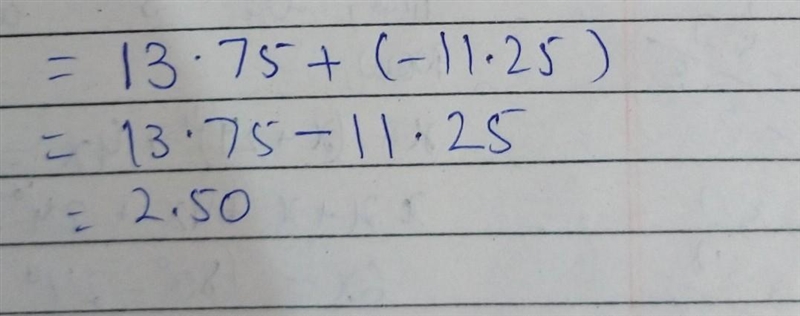 = 13.75 + (-11.25)
= 13.75 - 11.25
= 2.50